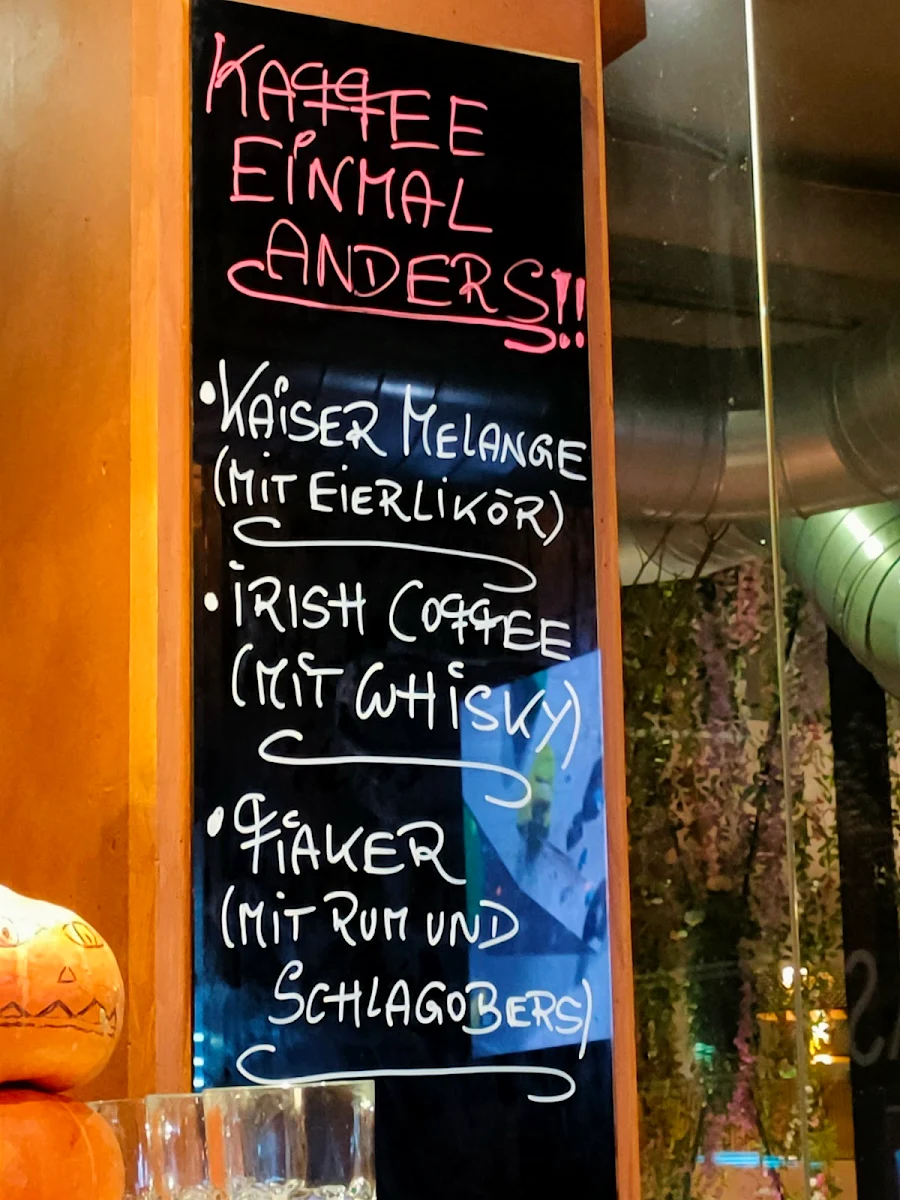 KAFFEE
EINMAL
ANDERS!!
• KAISER MELANGE
(MIT EIERLIKÖR)
• IRISH COFFEE
(MIT WHISKY)
• FIAKER
(MIT RUM UND
SCHLAGOBERS)